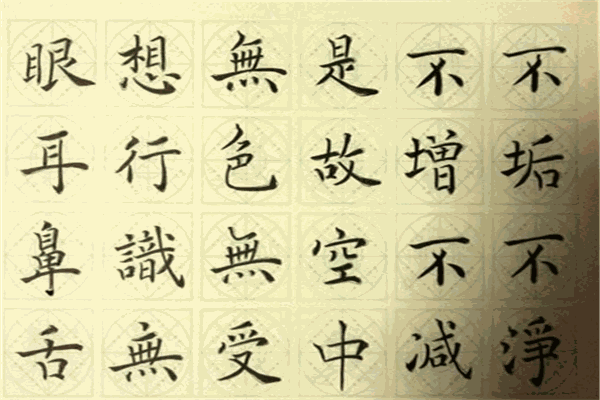 不垢不淨
不增不減
是故空中
無色無受
想行識無
眼耳鼻舌